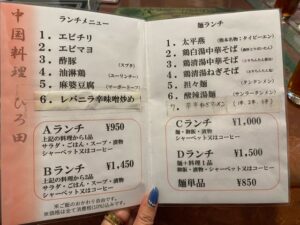 中国料理 ひろ田
ランチメニュー
1. エビチリ
2. エビマヨ
3. 酢豚 (スブタ)
4. 油淋鶏 (ユーリンチー)
5. 麻婆豆腐 (マーボードーフ)
6. レバニラ辛味噌炒め
Aランチ ¥950
上記の料理から1品
サラダ・ごはん・スープ・漬物
シャーベット又はコーヒー
Bランチ ¥1,450
上記の料理から2品
サラダ・ごはん・スープ・漬物
シャーベット又はコーヒー
麺ランチ
1. 太平燕 (熊本名物:タイピーエン)
2. 鶏白湯中華そば
3. 鶏清湯中華そば
4. 鶏清湯ねぎそば
5. 担々麺 (タンタンメン)
6. 酸辣湯麺 (サンラータンメン)
Cランチ ¥1,000
麺・御飯・漬物
シャーベット又はコーヒー
Dランチ ¥1,500
麺+料理1品
御飯・漬物
シャーベット又はコーヒー
麺単品 ¥850